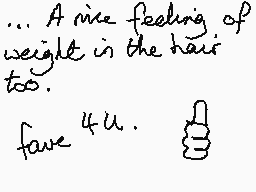 ... A nice feeling of
weight in the hair
too.
fave 4 u.